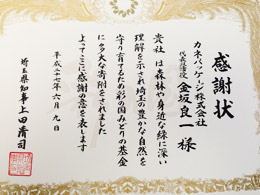 感謝状
カネパッケージ株式会社
代表取締役
金坂良一様
貴社は森林や身近な緑に深い
理解を示され埼玉の豊かな自然を
守り育てるため彩の国みどりの基金
に多大な寄附をされました
よってここに感謝の意を表します
平成二十七年六月九日
埼玉県知事上田清司